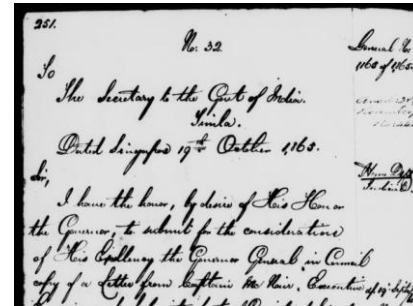 251.
No. 32
General No
1160 of 1865
To
The Secretary to the Govt of India.
Simla.
Dated Singapore 19th October 1865.
Home Dept
Sir,
I have the honor, by desire of His Honor
the Governor, to submit for the consideration
of His Excellency the Governor General in Council
copy of a Letter from Captain Mc Nair, Executive